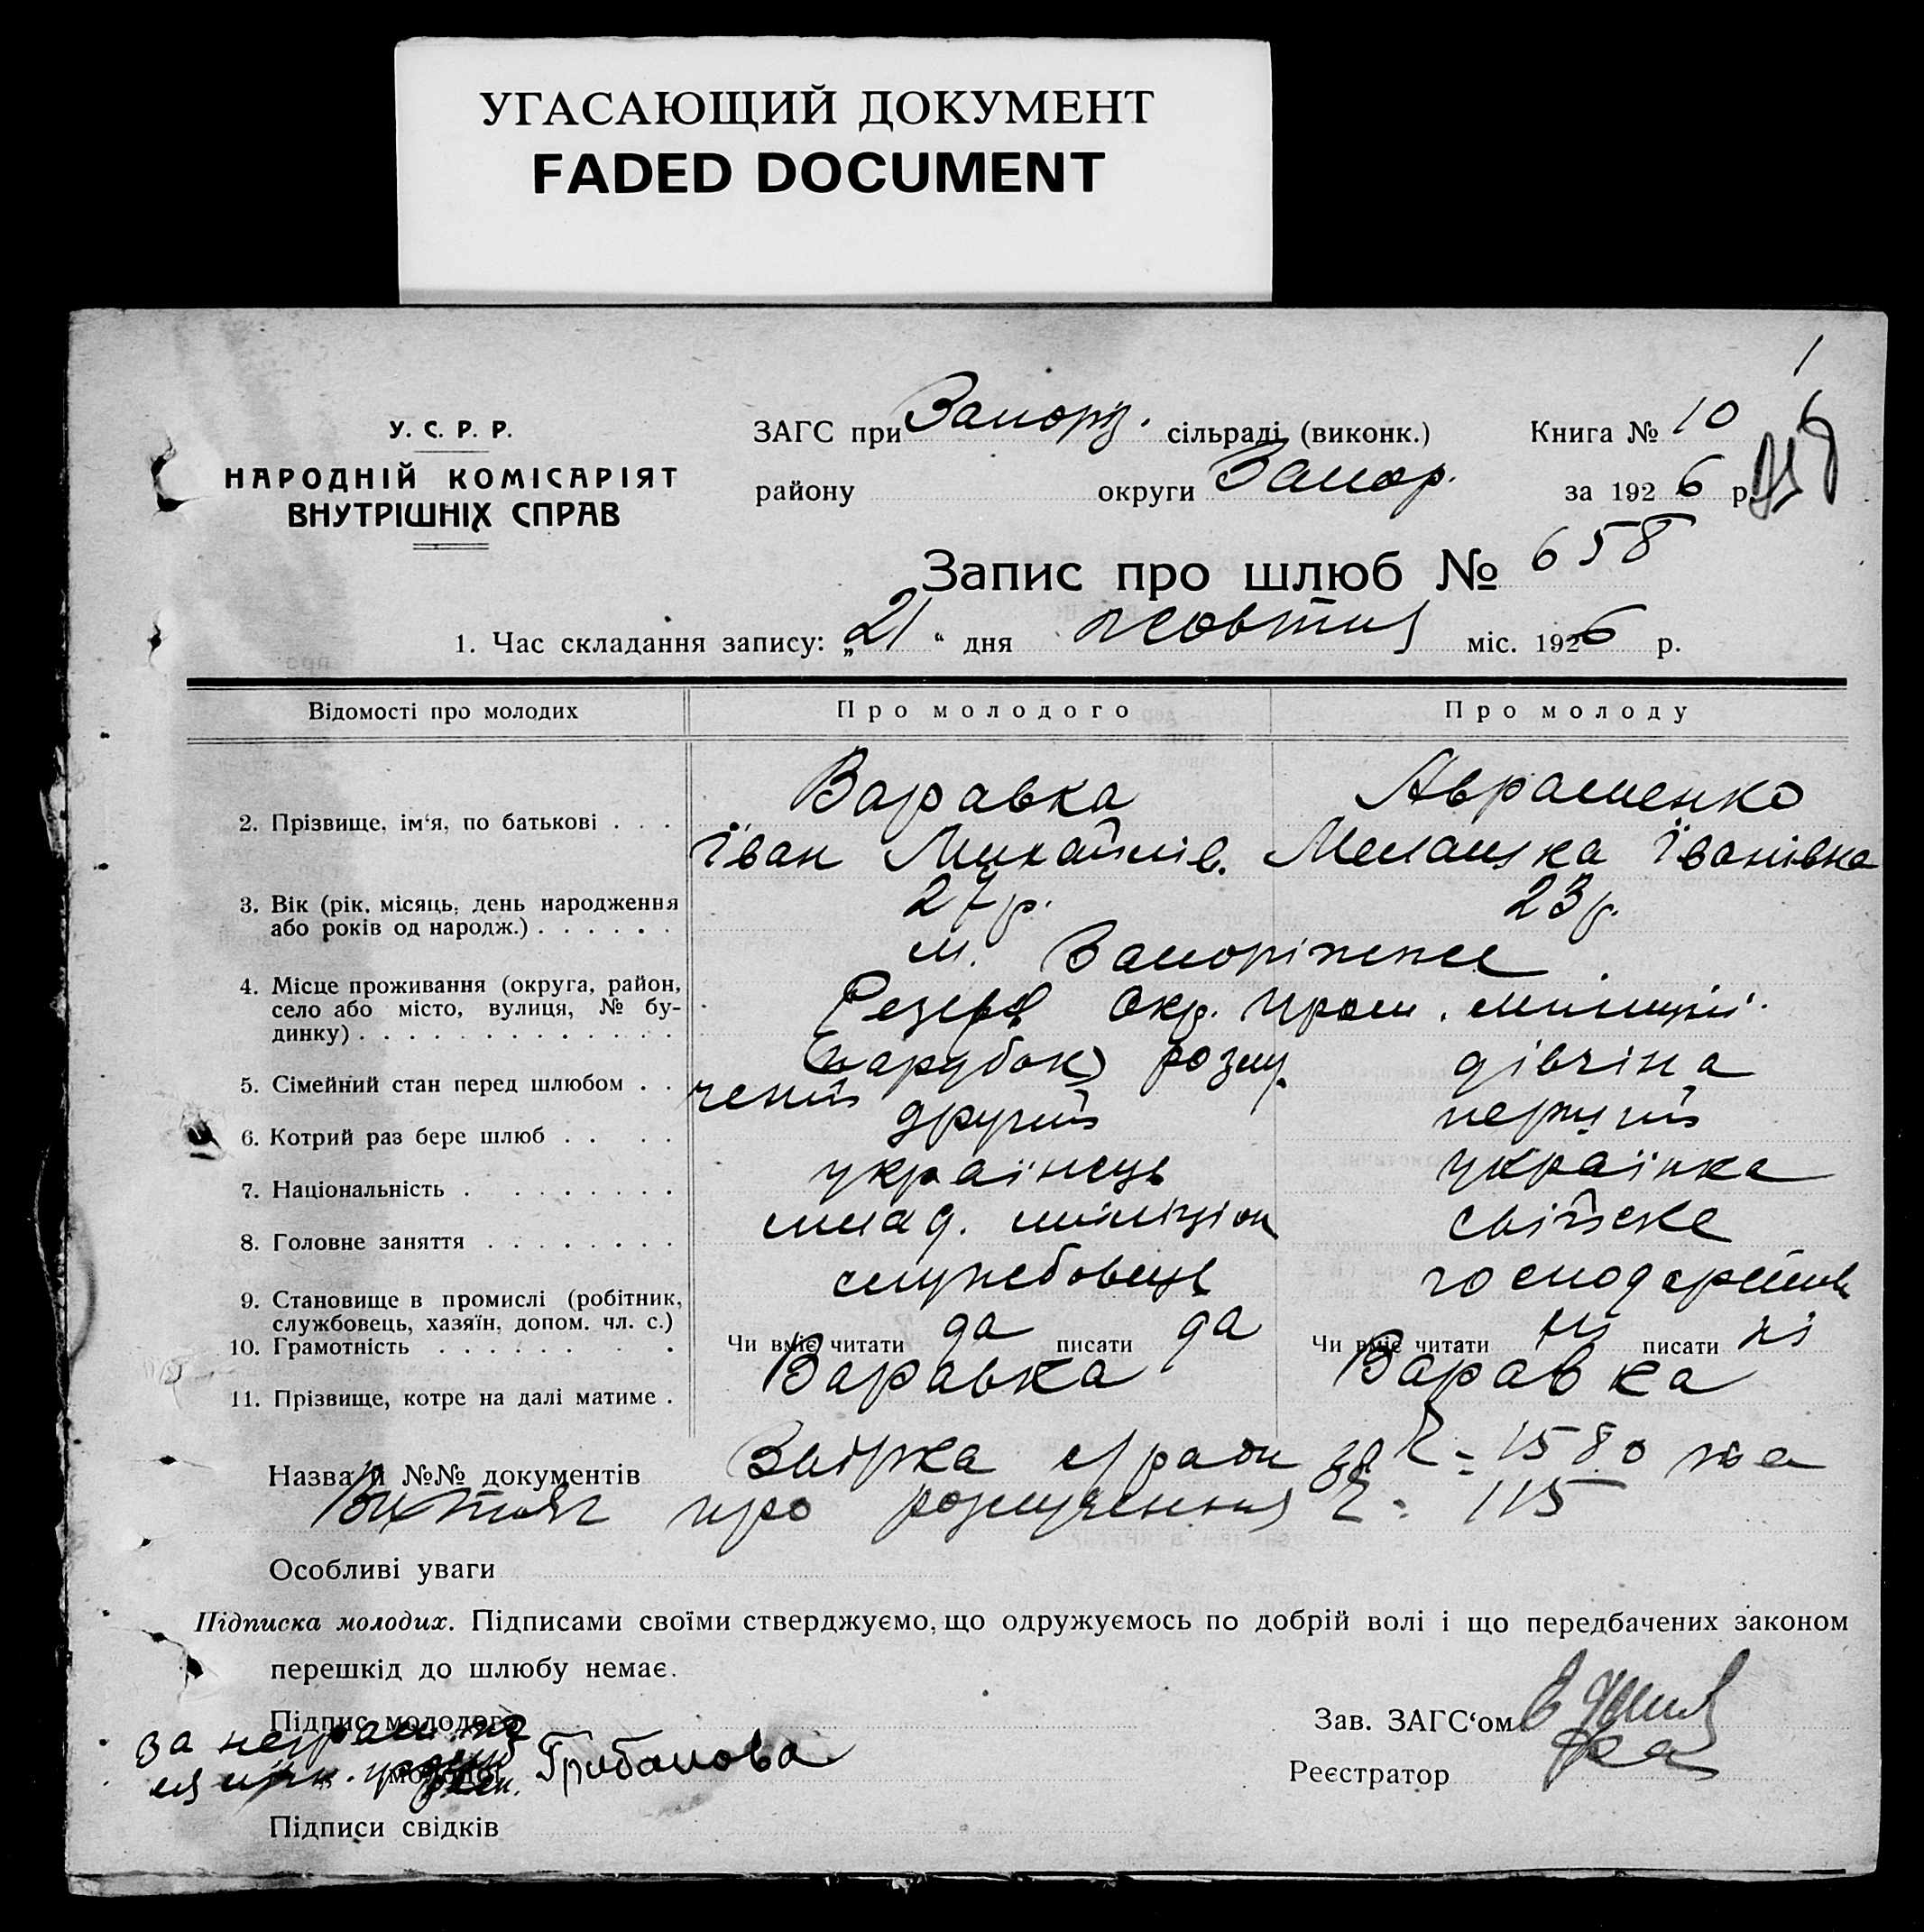 УГАСАЮЩИЙ ДОКУМЕНТ
FADED DOCUMENT
У. С. Р. Р.
НАРОДНІЙ КОМІСАРІЯТ
ВНУТРІШНІХ СПРАВ
ЗАГС при Запоріз. сільраді (виконк.) Книга № 10
району округи Запор. за 1926 р.
Запис про шлюб № 658
1. Час складання запису: „21“ дня жовтня міс. 1926 р.
Відомості про молодих Про молодого Про молоду
2. Прізвище, ім‘я, по батькові . . . Варавка Авраменко
Їван Михайлів. Меланка Їванівна
3. Вік (рік, місяць, день народження або років од народж.) . . . . . . 27 р. 23 р.
4. Місце проживання (округа, район, село або місто, вулиця, № будинку) . . . . . . . . . . . . . м. Запоріжже
Резерв Окр. пром. міліції.
5. Сімейний стан перед шлюбом . . (парубок) розлучений дівчіна
6. Котрий раз бере шлюб . . . . другий перший
7. Національність . . . . . . . . українець українка
8. Головне заняття . . . . . . . . млад. міліціон свійске
9. Становище в промислі (робітник, службовець, хазяїн, допом. чл. с.) служебовець
10. Грамотність . . . . . . . . Чи вміє читати да писати да Чи вміє читати ні писати ні
11. Прізвище, котре на далі матиме . Варавка Варавка
Назва й №№ документів 1580 та
Витяг про розлучення Ч: 115
Особливі уваги
Підписка молодих. Підписами своїми стверджуємо, що одружуємось по добрій волі і що передбачених законом
перешкід до шлюбу немає.
Підпис молодого Зав. ЗАГС‘ом
за неграмотн
„ молодої Грибанова Реєстратор
Підписи свідків